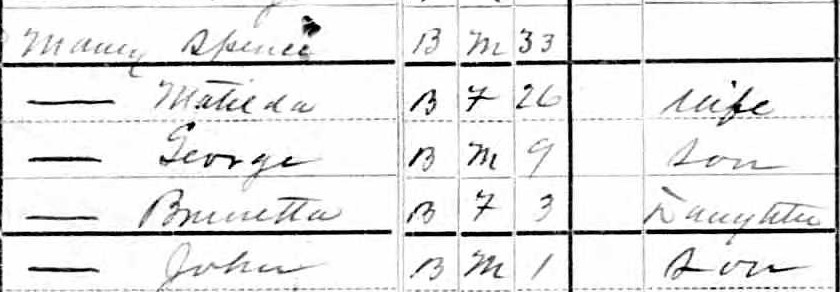 Maney Spence B M 33
— Matilda B F 26 Wife
— George B M 9 Son
— Brunetta B F 3 Daughter
— John B M 1 Son